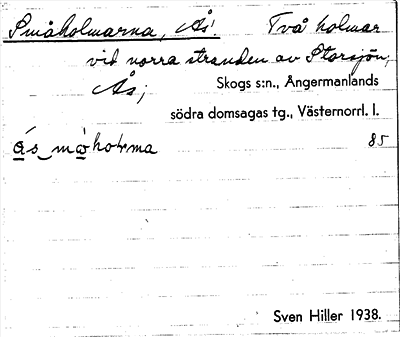 Småholmarna, Ås. Två holmar
vid norra stranden av Storsjön,
Ås;
Skogs s:n., Ångermanlands
södra domsagas tg., Västernorrl. l.
85
Sven Hiller 1938.